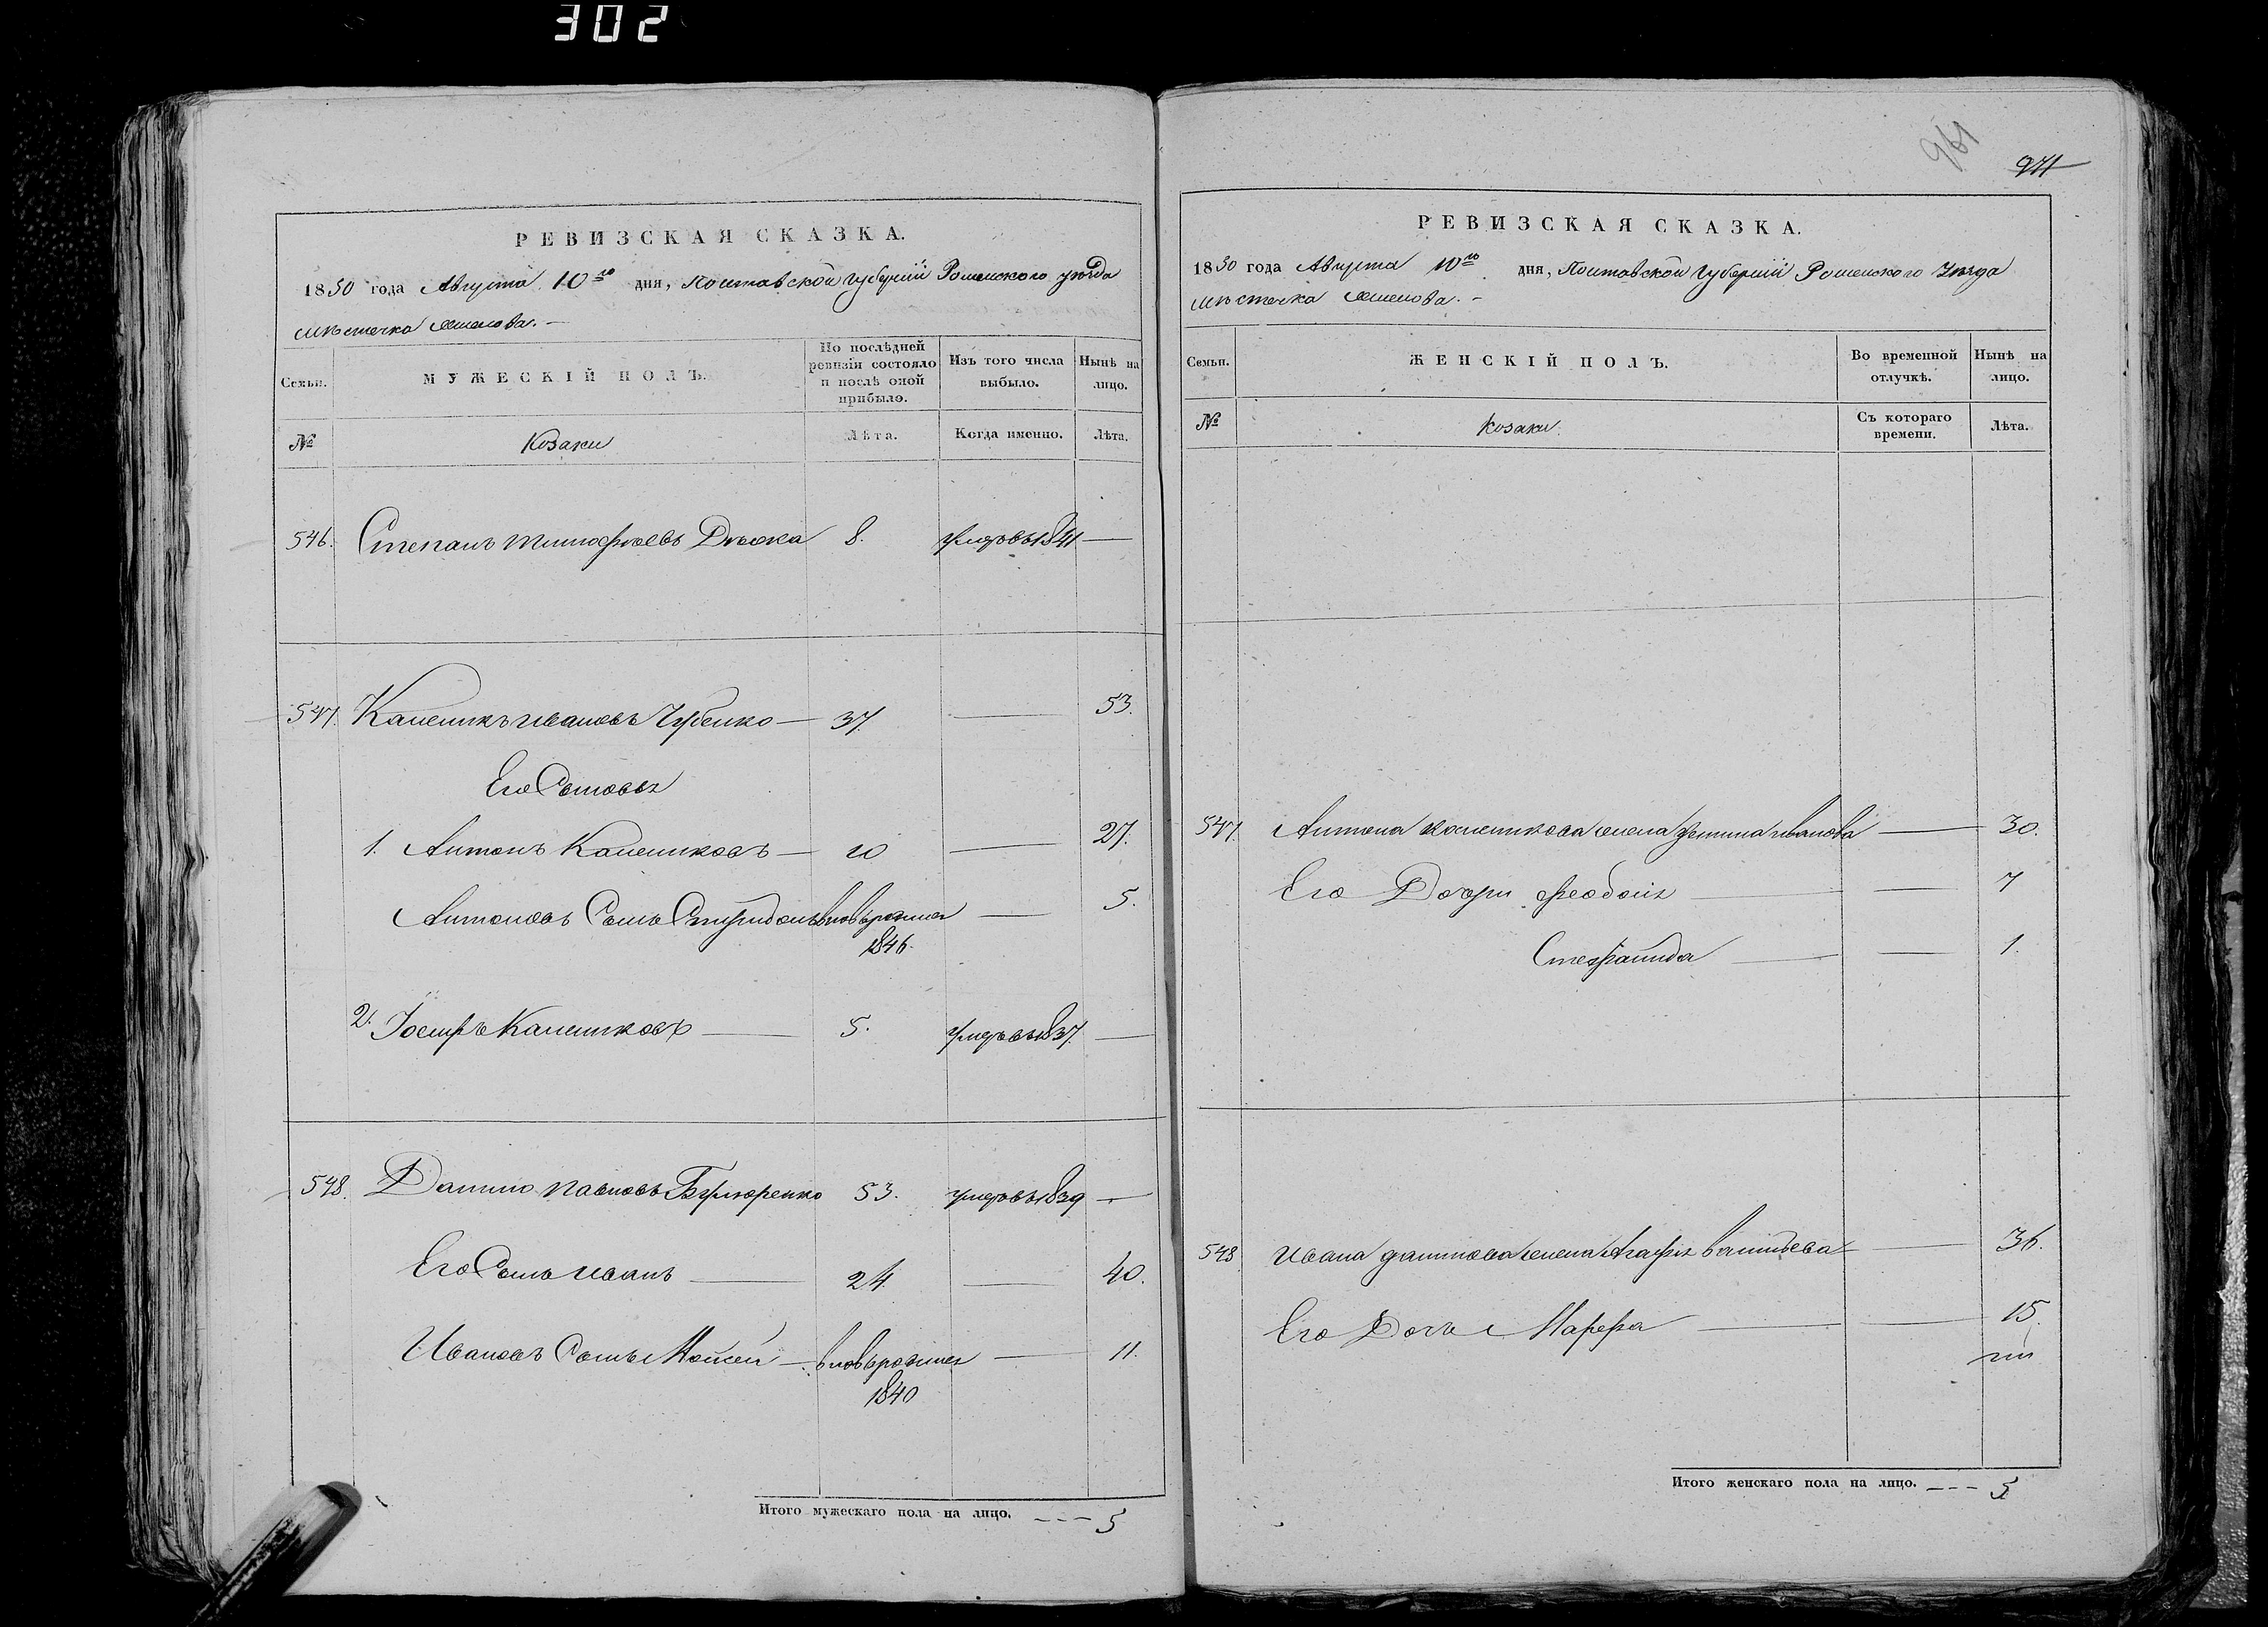 302
961
971
РЕВИЗСКАЯ СКАЗКА.
1850 года Августа 10го дня, Полтавской губерніи Роменского уѣзда
мѣстечка Смелова. –
Семьи.
МУЖЕСКІЙ ПОЛЪ.
По послѣдней ревизіи состояло и послѣ оной прибыло.
Изъ того числа выбыло.
Нынѣ на лицо.
№
Козаки
Лѣта.
Когда именно.
Лѣта.
546. Степанъ Тимофѣевъ 8. умеръ въ 1841 —
547. Каленикъ Ивановъ Чубенко — 37. — 53.
Его Сыновья
1. Антонъ Калениковъ — 10 — 27.
Антоновъ Сынъ Спиридонъ вновьрожден — 5.
1846.
2. Іосифъ Калениковъ — 5. умеръ въ 1837. —
548. Данило Павловъ 53. умеръ въ 1839 —
Его Сынъ Иванъ — 24. — 40.
Ивановъ Сынъ Моисей — вновьрожден — 11.
1840
Итого мужескаго пола на лицо. - - - 5
РЕВИЗСКАЯ СКАЗКА.
1850 года Августа 10го дня, Полтавской Губерніи Роменского Уѣзда
мѣстечка Смелова. –
Семьи.
ЖЕНСКІЙ ПОЛЪ.
Во временной отлучкѣ.
Нынѣ на лицо.
№
Козаки.
Съ котораго времени.
Лѣта.
547. Антона Каленикова жена Иванова — 30.
Его Дочери — — 7
Стефанида — — 1.
548 Ивана Данилова жена Агафія — 36.
Его Дочь Марфа — — 15.
Итого женскаго пола на лицо. - - - 5